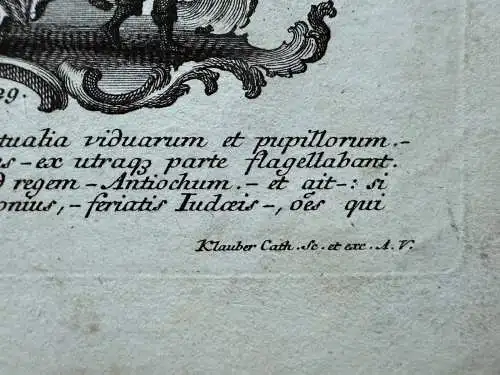 29.
tualia viduarum et pupillorum.-
us - ex utraqꝫ parte flagellabant.
d regem - Antiochum. - et ait -: si
onius, - feriatis Iudæis -, oẽs qui
Klauber Cath. Sc. et exc. A. V.